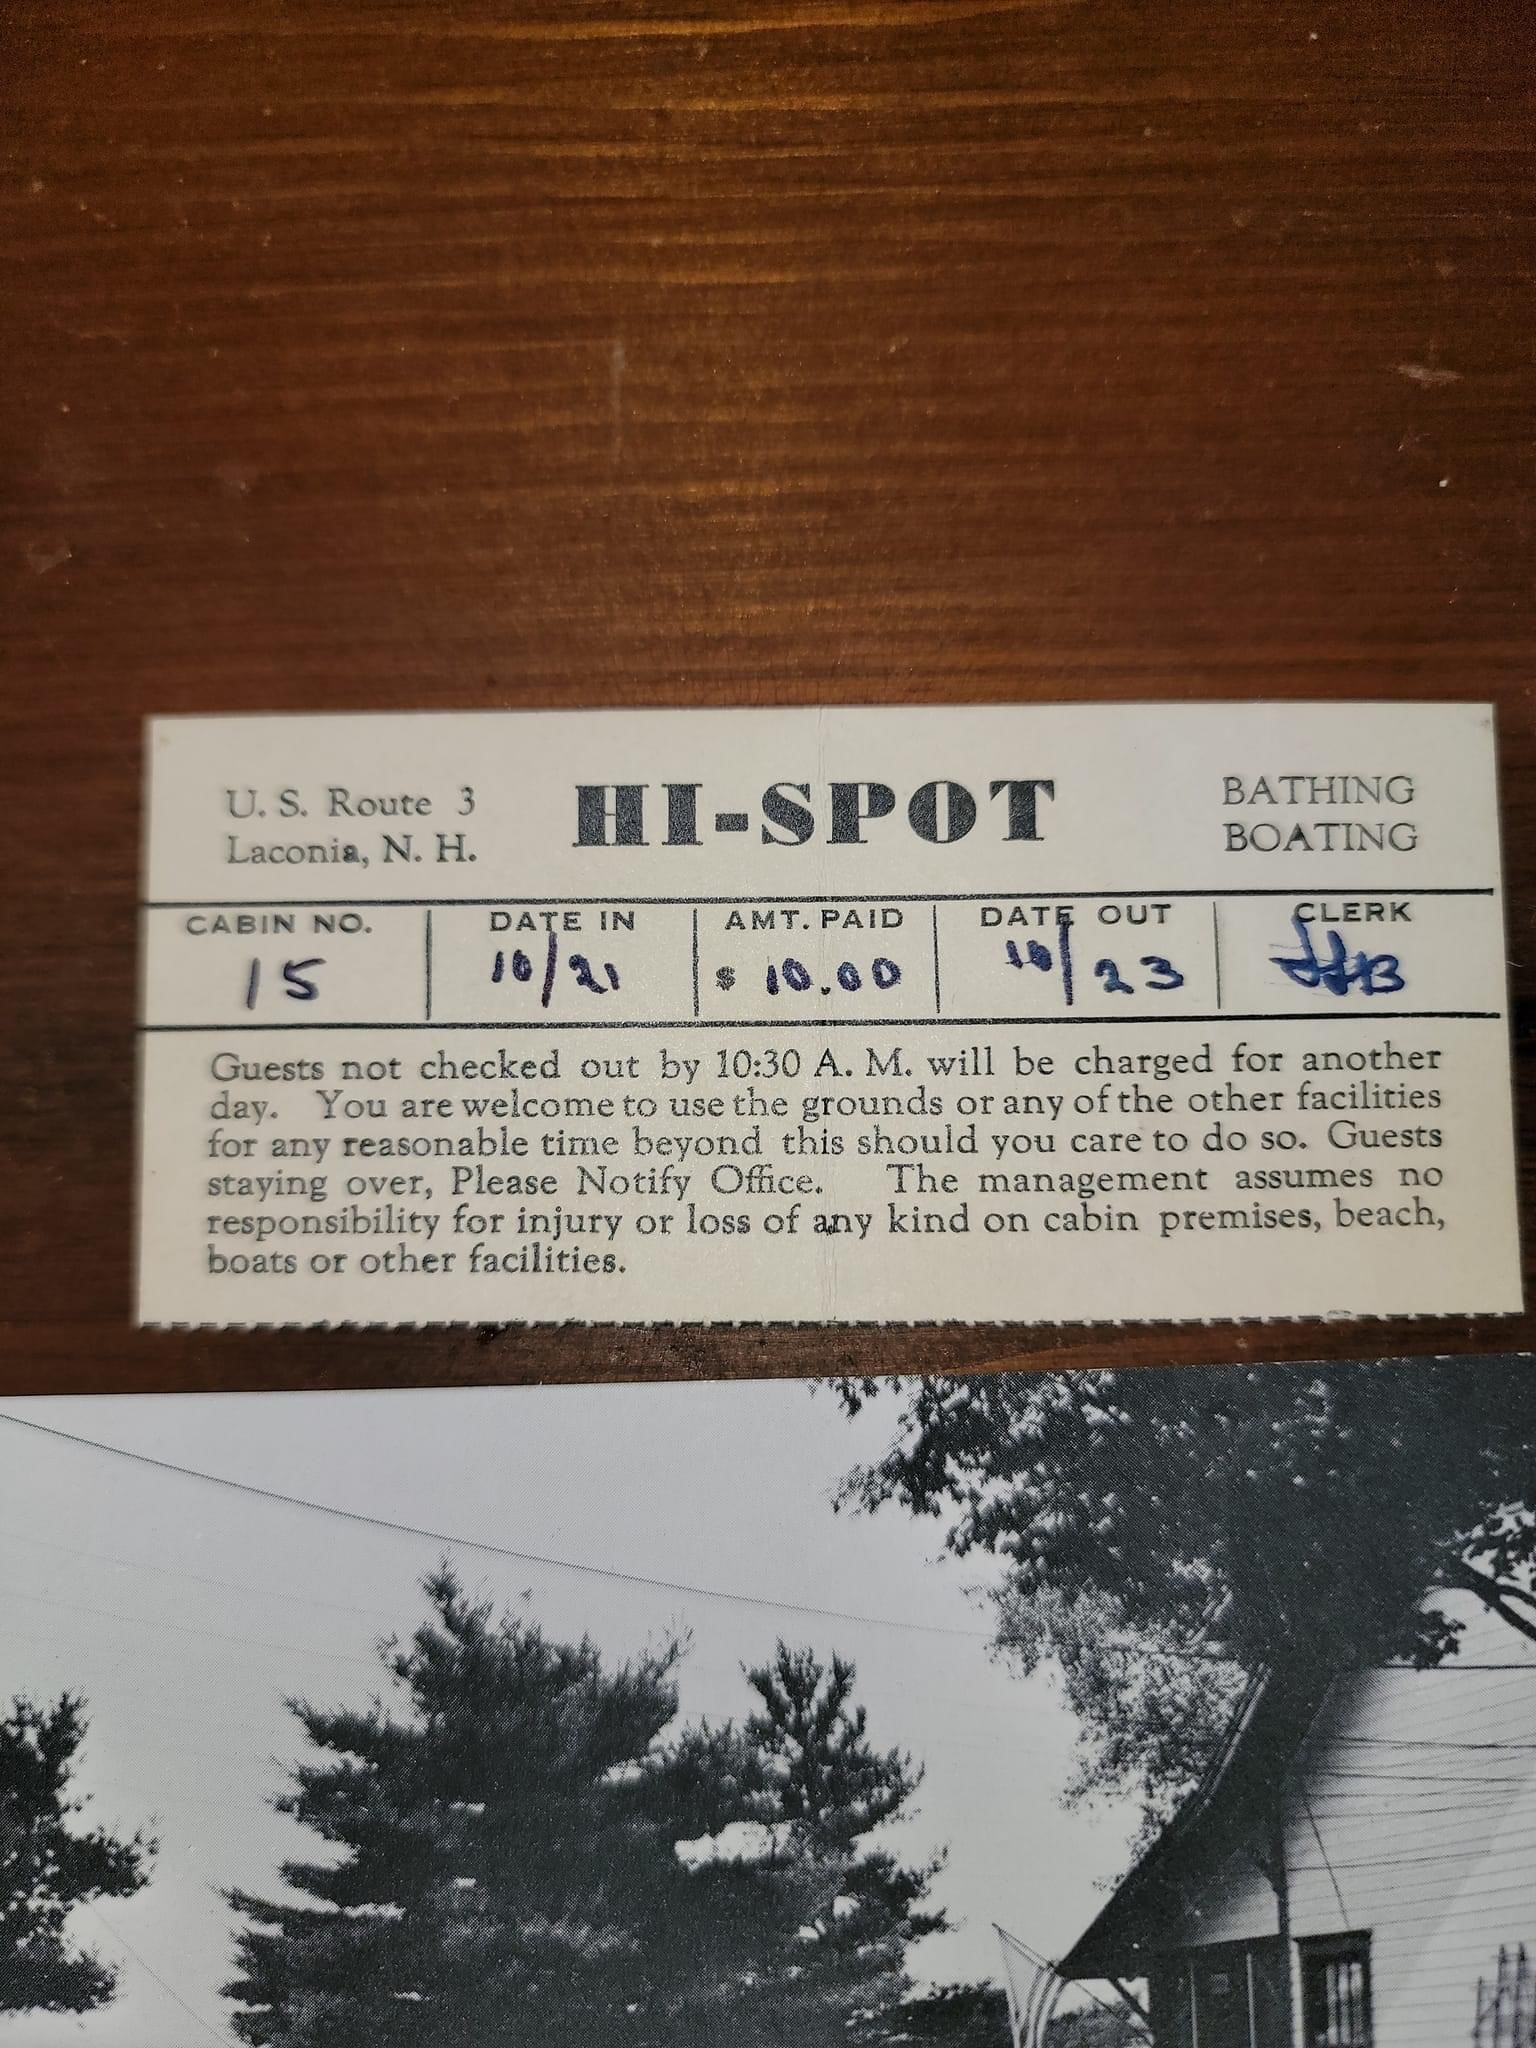 U. S. Route 3 HI-SPOT BATHING
Laconia, N. H. BOATING
CABIN NO. DATE IN AMT. PAID DATE OUT CLERK
15 10/21 $ 10.00 10/23
Guests not checked out by 10:30 A. M. will be charged for another
day. You are welcome to use the grounds or any of the other facilities
for any reasonable time beyond this should you care to do so. Guests
staying over, Please Notify Office. The management assumes no
responsibility for injury or loss of any kind on cabin premises, beach,
boats or other facilities.